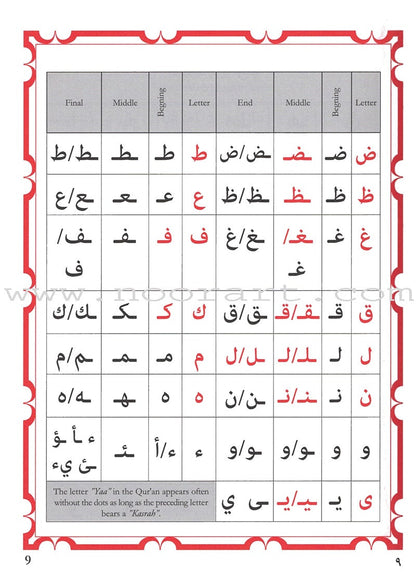 Final Middle Begning Letter End Middle Begning Letter
ض ضـ ـضـ ـض/ض ط طـ ـطـ ـط/ط
ظ ظـ ـظـ ـظ/ظ ع عـ ـعـ ـع/ع
غ غـ ـغـ/ ـغ/غ ف فـ ـفـ ـف/
غـ ف
www.noorart.com
ق قـ ـقـ/قـ ـق/ق ك كـ ـكـ ـك/ك
ل لـ ـلـ/لـ ـل/ل م مـ ـمـ ـم/م
ن نـ ـنـ/نـ ـن/ن ه هـ ـهـ ـه/ه
و و ـو/و ـو/و ء ء/أ ـئـ ء ـأ ـؤ
ـئ يء
ى يـ ـيـ/يـ ـى ي
The letter "Yaa" in the Qur'an appears often
without the dots as long as the preceding letter
bears a "Kasrah".
9 ٩